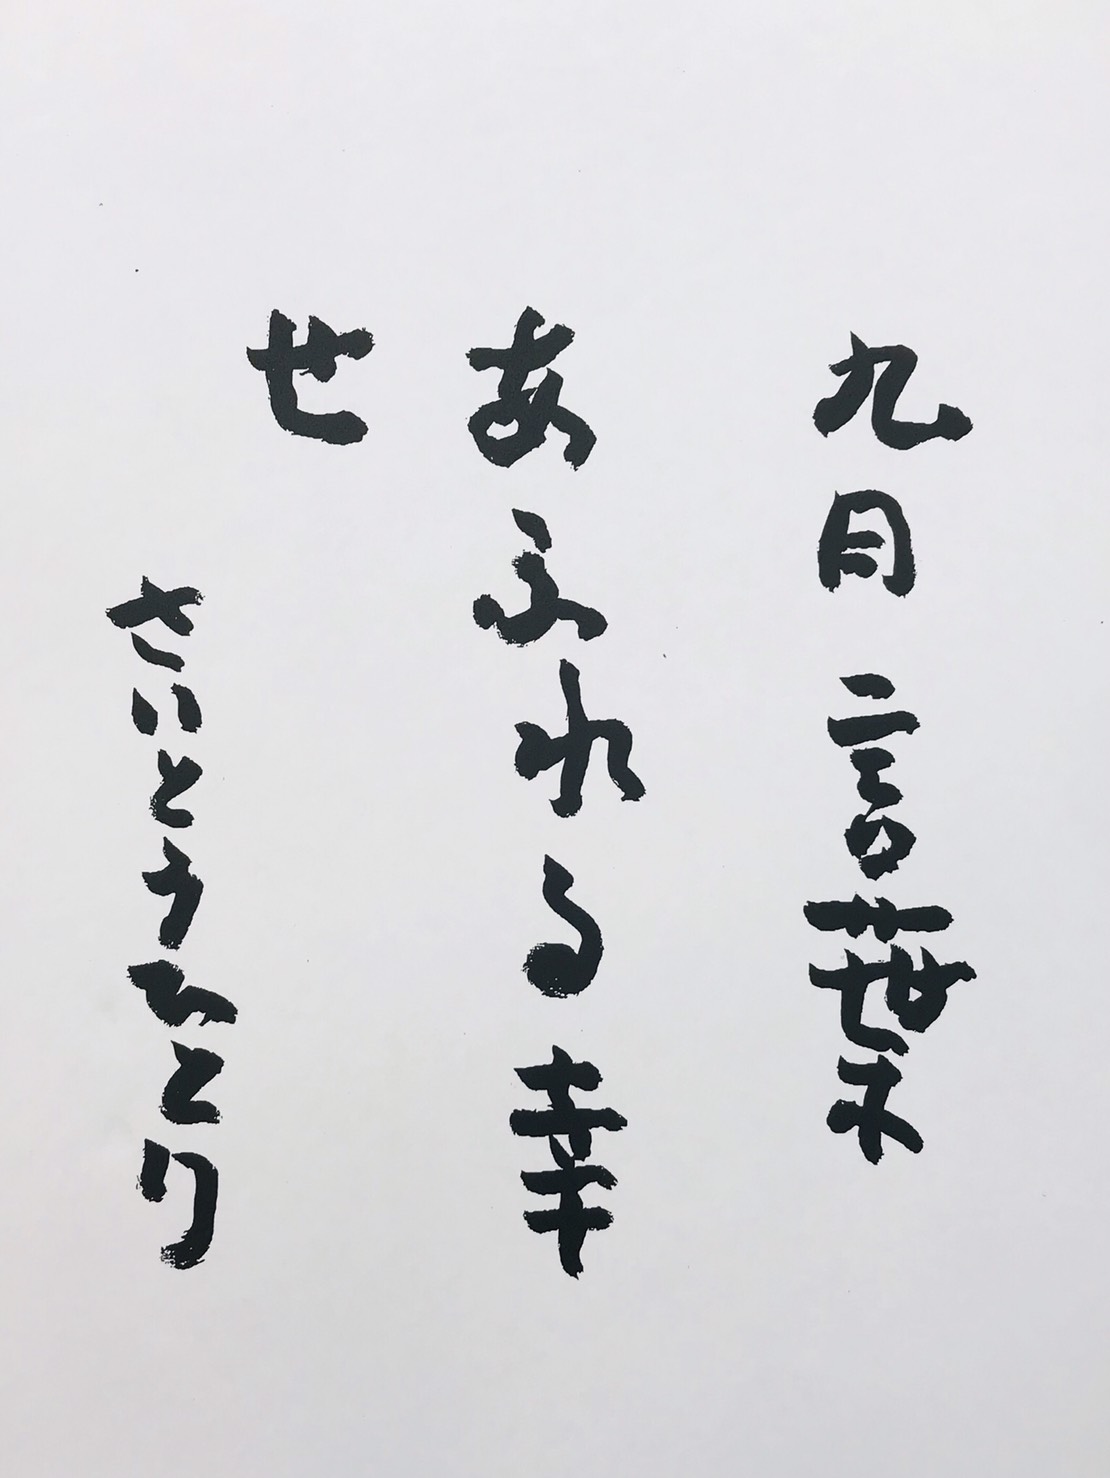 九月言葉
あふれる幸
せ
さいとうひとり